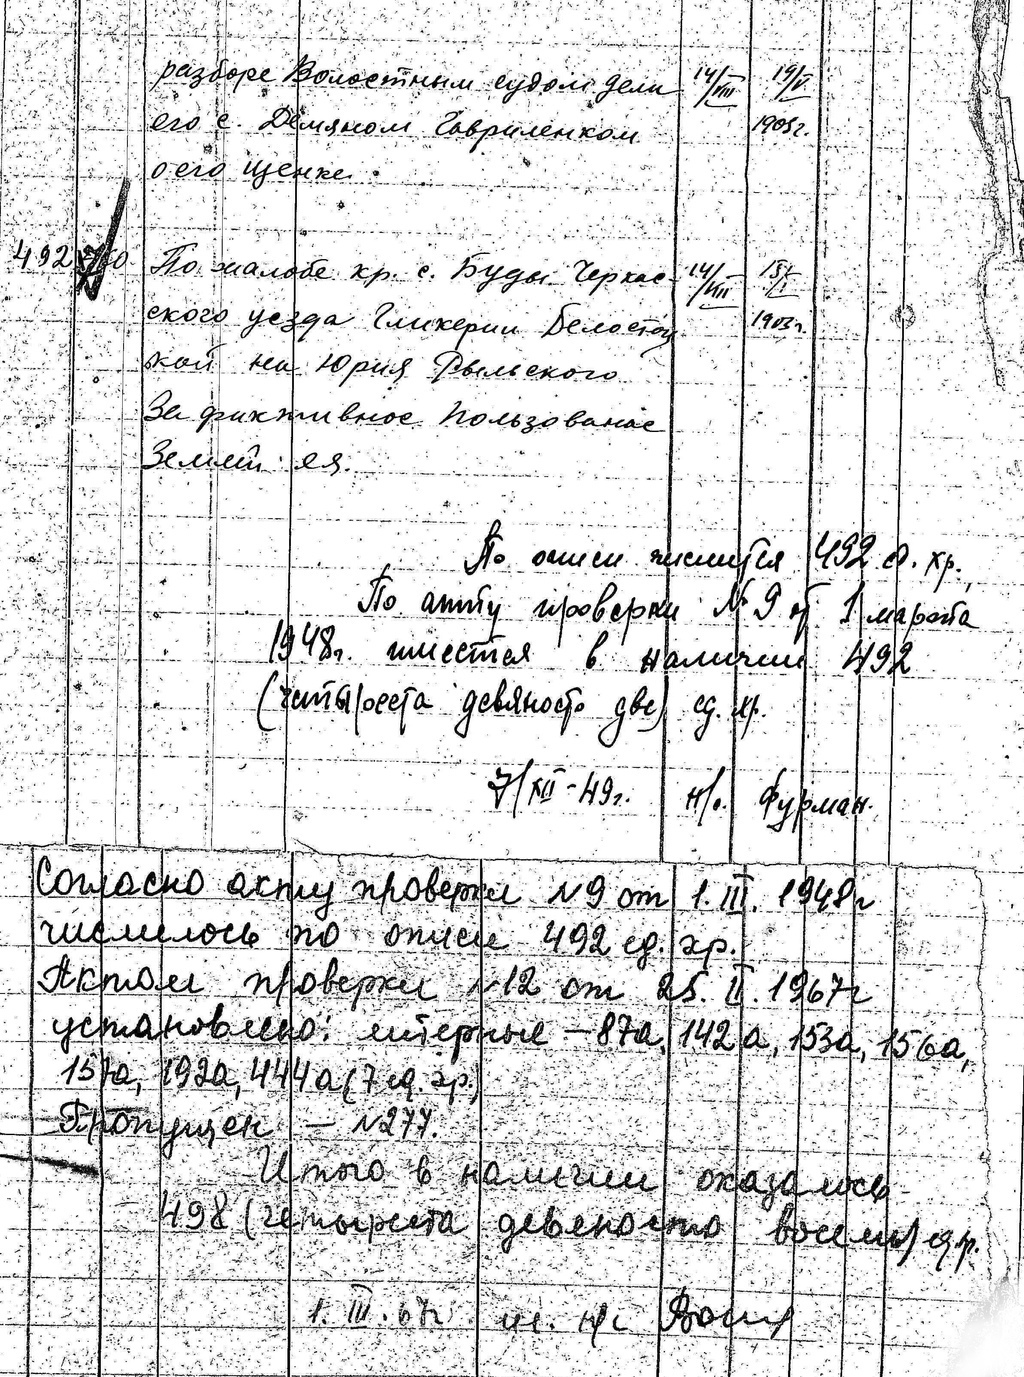 разборе Волостным судом дела 14/VIII 19/V
его с. Демяном Гавриленком 1905г.
о его щенке.
492 По жалобе кр. с. Буды Черкас- 14/VIII 15/I
ского уезда Гликерии Белостоц 1903г.
кой на Юрия Рыльского
За фиктивное пользование
Землей ея.
По описи числится 492 ед. хр.
По акту проверки № 9 от 1 марта
1948г. имеется в наличии 492
(четыреста девяносто две) ед. хр.
7/XII-49г. н/с. Фурман.
Согласно акту проверки №9 от 1.III.1948г
числилось по описи 492 ед. хр.
Актом проверки №12 от 25.II.1967г
установлено: литерные – 87а, 142а, 153а, 156а,
157а, 192а, 444а (7 ед. хр.)
Пропущен – №277.
Итого в наличии оказалось
498 (четыреста девяносто восемь) ед.хр.
1.III.67г ст. н/с